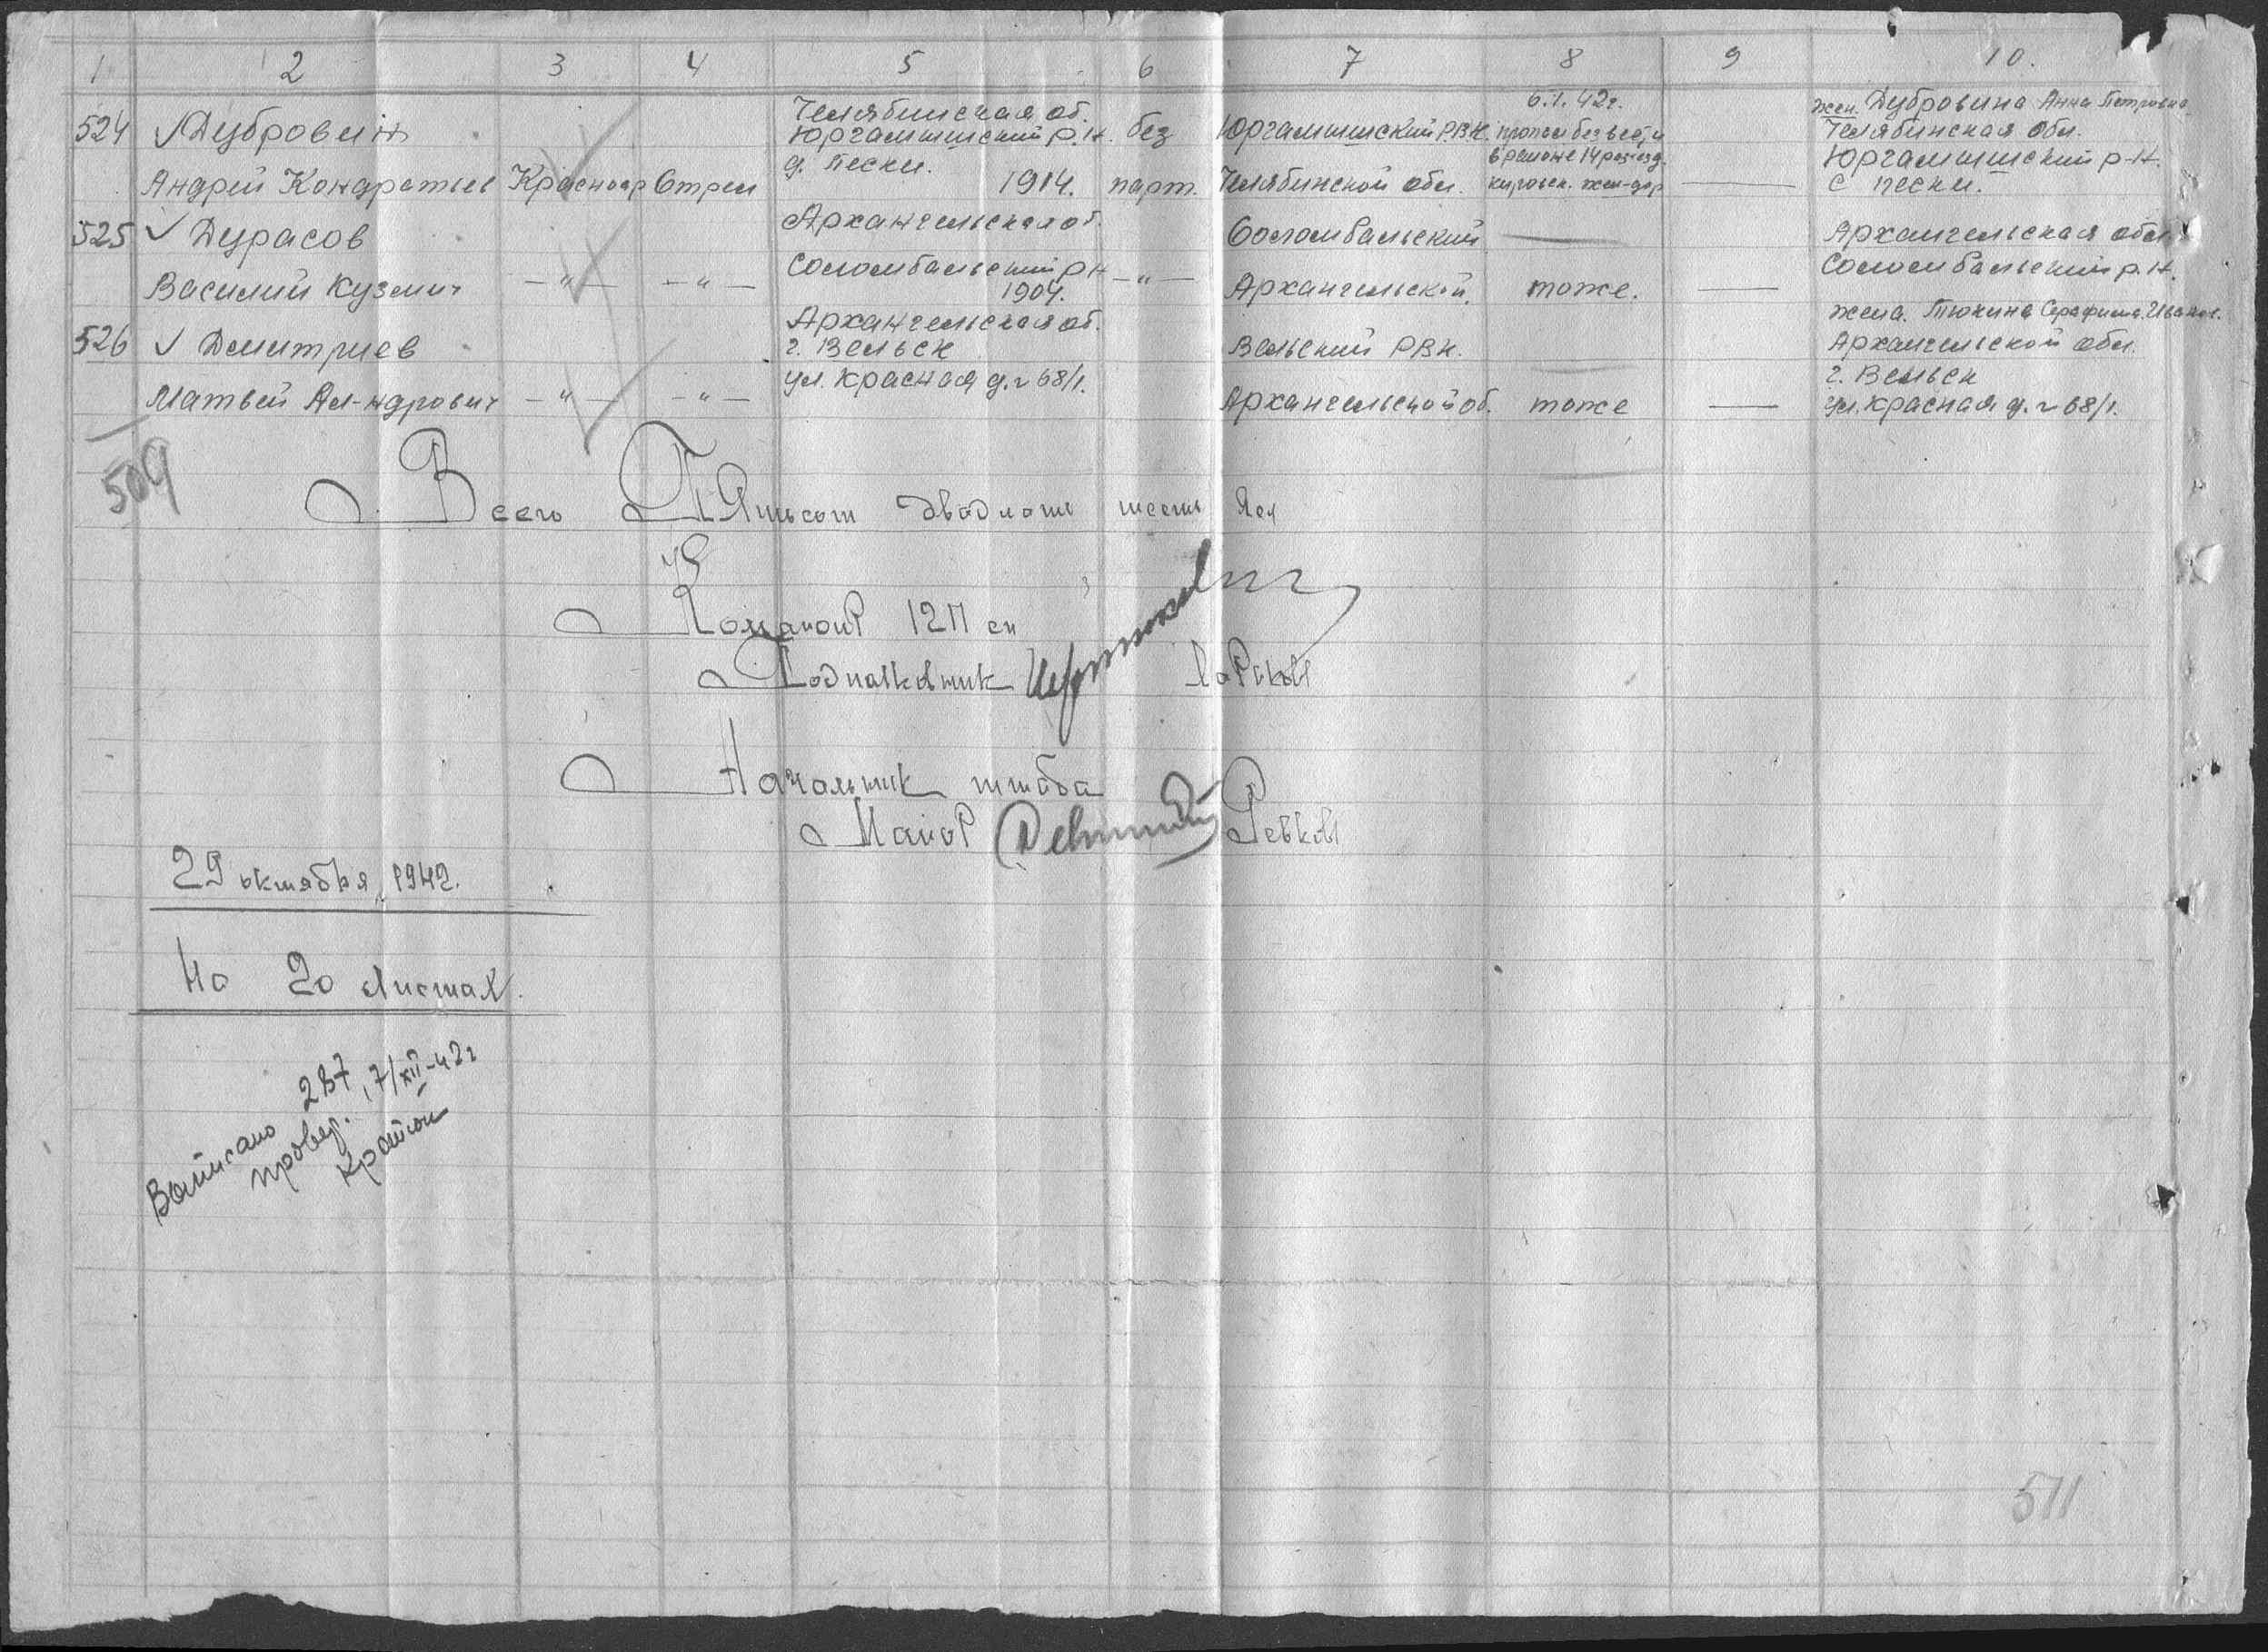 1 2 3 4 5 6 7 8 9 10.
524 Дубровин
Андрей Кондратьев Красноар Стрел
Челябинская об.
Юргамышский р.н.
д. Пески.
1914.
без
парт.
Юргамышский Р.В.К.
Челябинской обл.
6.1.42г.
пропал без вести
в районе 14 разъезд.
кировск. жел-дор
жен. Дубровина Анна Петровна
Челябинская обл.
Юргамышский р-н.
с пески.
525 Дурасов
Василий Кузмич — " — — " —
Архангельская об.
Соломбальский р-н
1904.
— " —
Соломбальский
Архангельской.
тоже.
Архангельская обл.
Соломбальский р.н.
526 Дмитриев
Матвей Ал-ндрович — " — — " —
Архангельская об.
г. Вельск
ул. Красная д. № 68/1.
Вельский РВК.
Архангельской об.
тоже
жена. Тюкина Серафима Иванов.
Архангельской обл.
г. Вельск
ул. Красная д. № 68/1.
509
Всего Пятьсот двадцать шесть
Командир 1217 сп
Подполковник
Начальник штаба
Майор Ревков
29 октября 1942.
На 20 листах.
Выписано 287
провер. 7/XII-42г
511